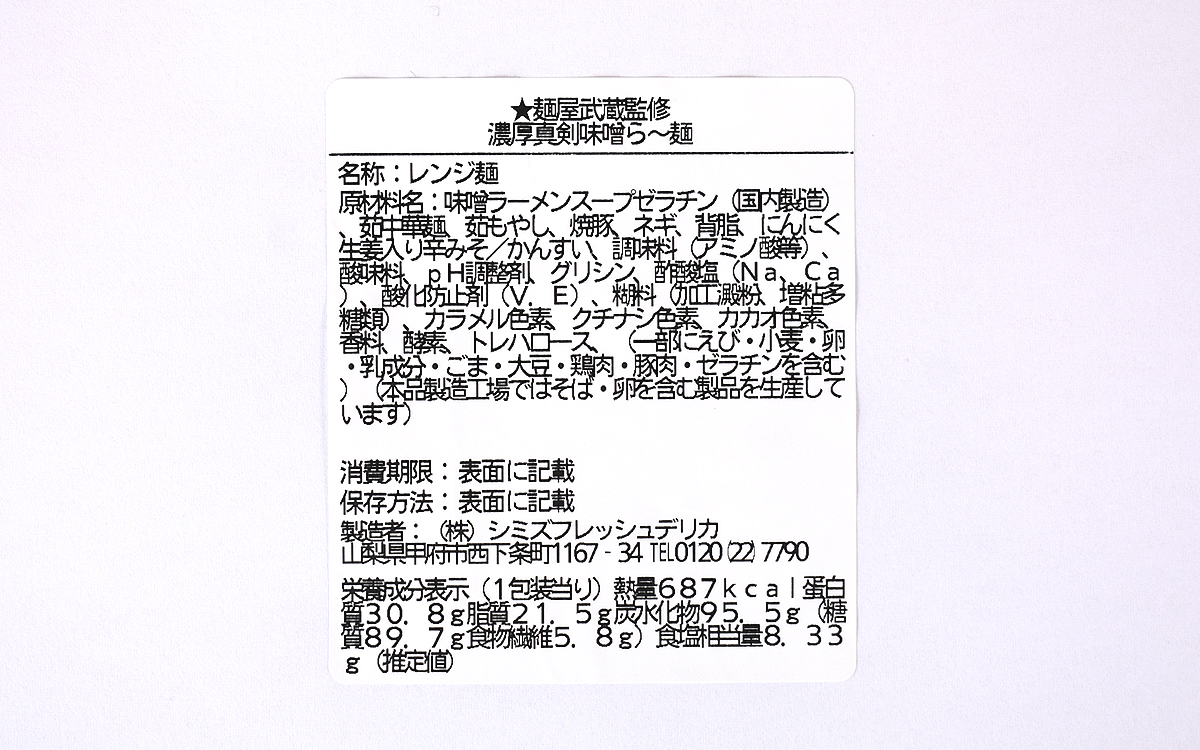 ★麺屋武蔵監修
濃厚真剣味噌ら～麺
名称：レンジ麺
原材料名：味噌ラーメンスープゼラチン（国内製造）
、茹中華麺、茹もやし、焼豚、ネギ、背脂、にんにく
生姜入り辛みそ／かんすい、調味料（アミノ酸等）、
酸味料、ｐＨ調整剤、グリシン、酢酸塩（Ｎａ、Ｃａ
）、酸化防止剤（Ｖ．Ｅ）、糊料（加工澱粉、増粘多
糖類）、カラメル色素、クチナシ色素、カカオ色素、
香料、酵素、トレハロース、（一部にえび・小麦・卵
・乳成分・ごま・大豆・鶏肉・豚肉・ゼラチンを含む
）（本品製造工場ではそば・卵を含む製品を生産して
います）
消費期限：表面に記載
保存方法：表面に記載
製造者：（株）シミズフレッシュデリカ
山梨県甲府市西下条町1167－34 TEL0120(22)7790
栄養成分表示（１包装当り）熱量６８７ｋｃａｌ蛋白
質３０．８ｇ脂質２１．５ｇ炭水化物９５．５ｇ（糖
質８９．７ｇ食物繊維５．８ｇ）食塩相当量８．３３
ｇ（推定値）